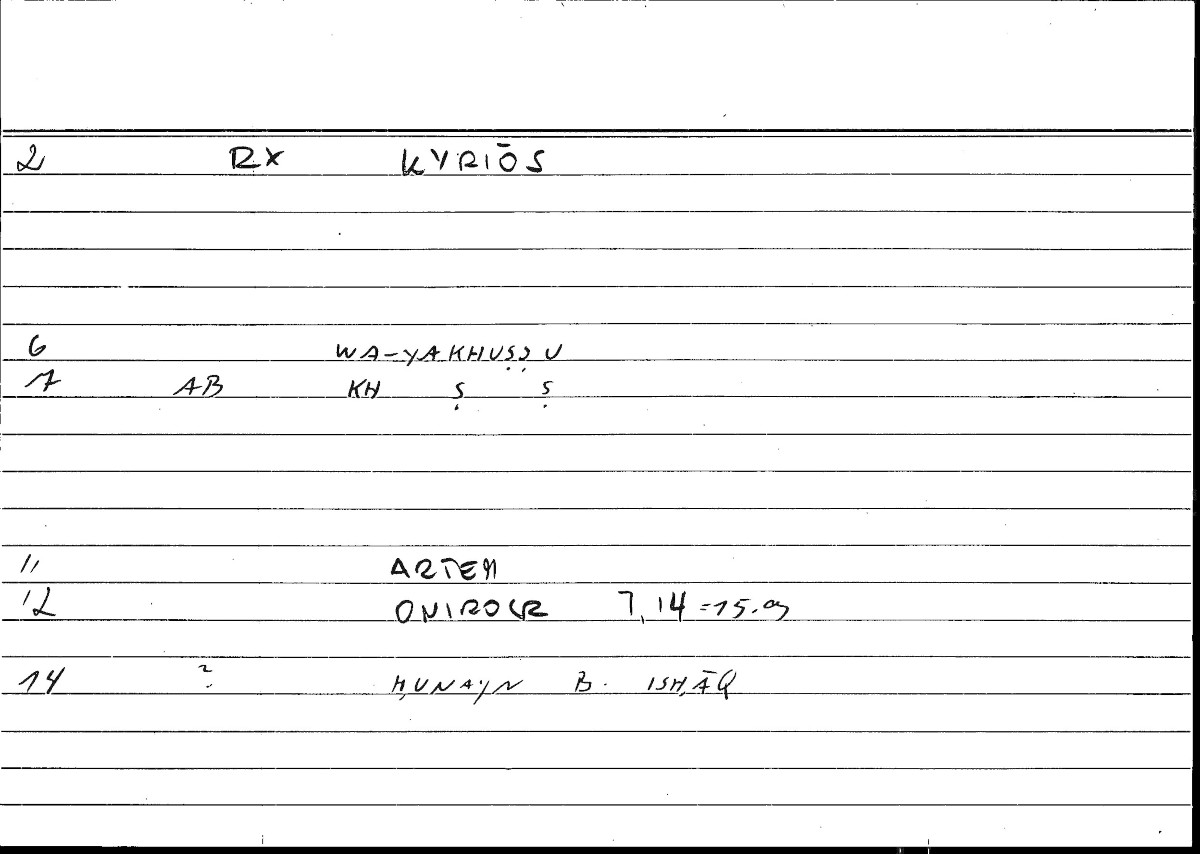 2 RX KYRIŌS
6 WA-YAKHUṢṢU
7 AB KH Ṣ Ṣ
11 ARTEM
12 ONIROCR 7,14 =15.09
14 ? ḤUNAYN B. ISḤĀQ